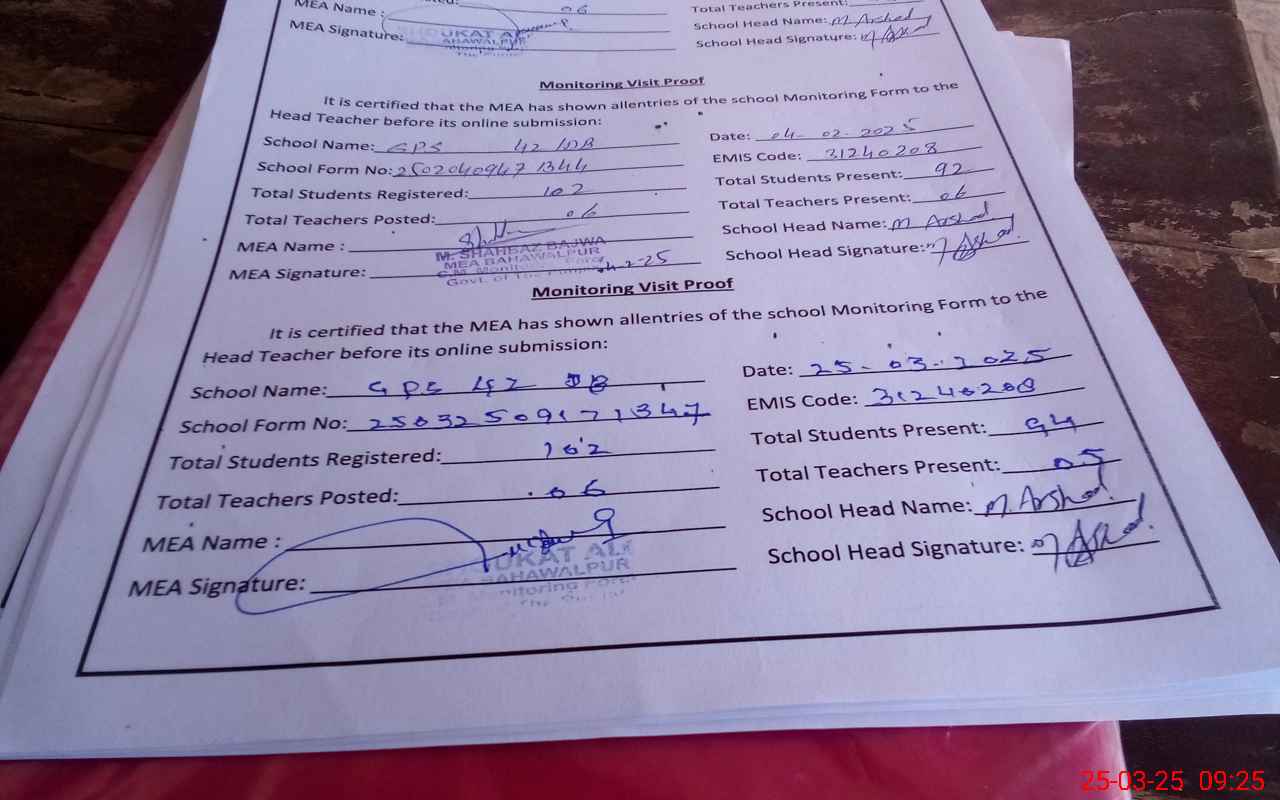 MEA Name : 06 Total Teachers Present:
MEA Signature: School Head Name: M. Arshad
School Head Signature:
Monitoring Visit Proof
It is certified that the MEA has shown allentries of the school Monitoring Form to the
Head Teacher before its online submission:
School Name: GPS 42 /DB Date: 04-02-2025
School Form No: 2502040947 1344 EMIS Code: 31240208
Total Students Registered: 102 Total Students Present: 92
Total Teachers Posted: 06 Total Teachers Present: 06
MEA Name : School Head Name: M Arshad
M. SHAHBAZ BAJWA
MEA BAHAWALPUR
MEA Signature: School Head Signature: M Arshad
Govt. of The Punjab
Monitoring Visit Proof
It is certified that the MEA has shown allentries of the school Monitoring Form to the
Head Teacher before its online submission:
School Name: GPS 42 DB Date: 25-03-2025
School Form No: 25032509171347 EMIS Code: 31240208
Total Students Registered: 102 Total Students Present: 94
Total Teachers Posted: 06 Total Teachers Present: 05
MEA Name : School Head Name: M. Arshad
UKAT ALI
BAHAWALPUR
MEA Signature: School Head Signature: M Arshad
25-03-25 09:25